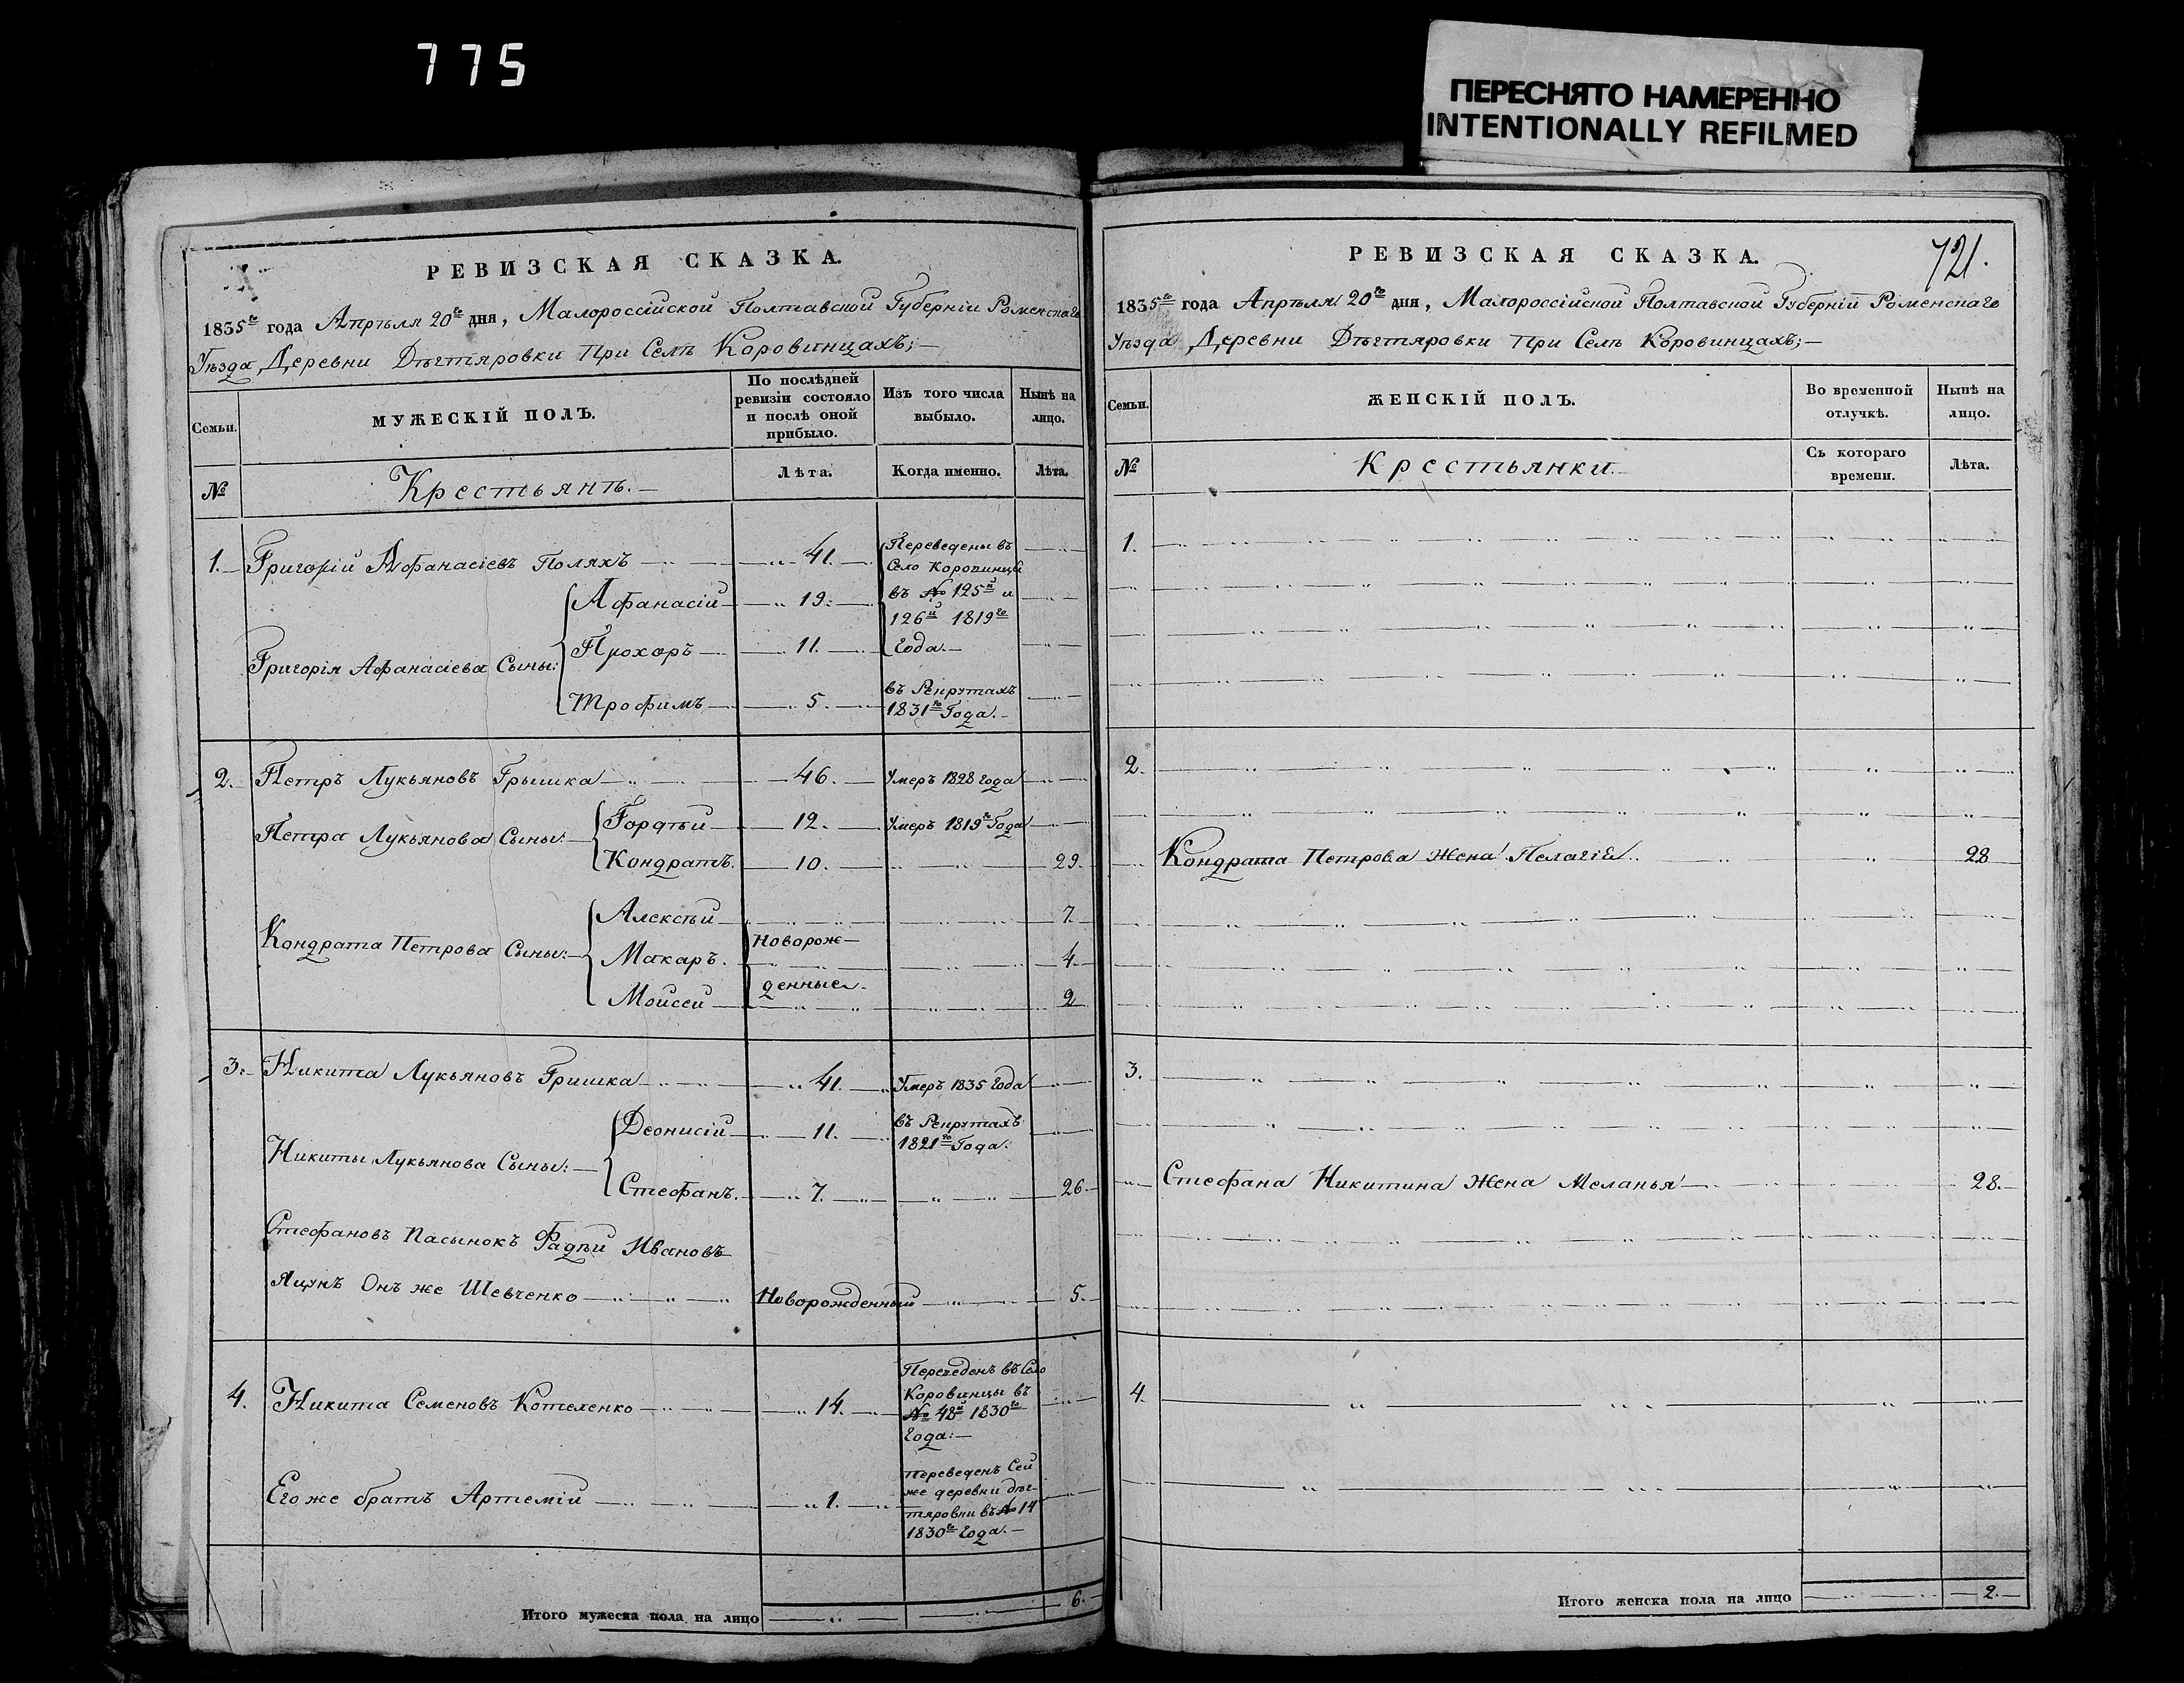 775
ПЕРЕСНЯТО НАМЕРЕННО
INTENTIONALLY REFILMED
РЕВИЗСКАЯ СКАЗКА.
1835го года Апрѣля 20го дня, Малороссійской Полтавской Губерніи Роменскаго
Уѣзда, Деревни Дѣгтяровки при Селѣ Коровинцахъ;—
Семьи.
МУЖЕСКІЙ ПОЛЪ.
По послѣдней ревизіи состояло и послѣ оной прибыло.
Изъ того числа выбыло.
Нынѣ на лицо.
№
Крестьянъ.—
Лѣта.
Когда именно.
Лѣта.
1. Григорій Афанасіевъ Поляхъ 41. Переведены въ
Село Коровинцы
Афанасій 19. въ № 125й и
126й 1819го
Григорія Афанасіева Сыны: Прохоръ 11. Года.—
Трофимъ 5. въ Рекрутахъ
1831го Года.—
2. Петръ Лукьяновъ Грышка 46. Умеръ 1828 Года
Петра Лукьянова Сыны: Гордѣй 12. Умеръ 1819го Года
Кондратъ. 10. 29.
Алексѣй 7.
Кондрата Петрова Сыны: Новорож-
Макаръ. 4.
денные.
Моисей 2
3. Никита Лукьяновъ Гришка 41. Умеръ 1835 Года
Никиты Лукьянова Сыны: Деонисій 11. въ Рекрутахъ
1821го Года.
Стефанъ. 7. 26.
Стефановъ Пасынокъ Фадѣй Ивановъ
Яцунъ Онъ же Шевченко Новорожденный 5.
4. Никита Семеновъ Котеленко 14. Переведенъ въ Село
Коровинцы въ
№ 48й 1830го
Года:—
Его же братъ Артемій 1. Переведенъ Сей
же деревни Дѣг-
тяровки въ № 14
1830го Года.—
Итого мужеска пола на лицо 6.
РЕВИЗСКАЯ СКАЗКА.
721.
1835го года Апрѣля 20го дня, Малороссійской Полтавской Губерніи Роменскаго
Уѣзда, Деревни Дѣгтяровки при Селѣ Коровинцахъ;—
Семьи.
ЖЕНСКІЙ ПОЛЪ.
Во временной отлучкѣ.
Нынѣ на лицо.
№
Крестьянки.
Съ котораго времени.
Лѣта.
1.
2.
Кондрата Петрова Жена Пелагія 28
3.
Стефана Никитина Жена Меланья 28.
4.
Итого женска пола на лицо 2.